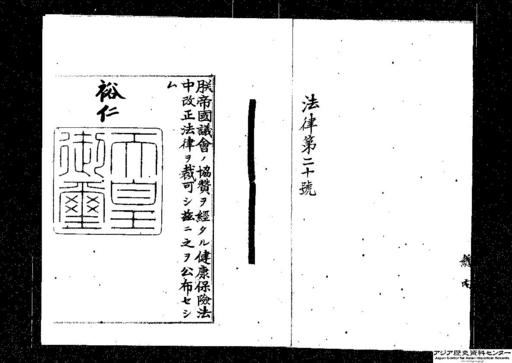 法律第二十號
朕帝國議會ノ協贊ヲ經タル健康保險法
中改正法律ヲ裁可シ茲ニ之ヲ公布セシ
ム
裕仁
天皇
御璽
内閣
アジア歴史資料センター
Japan Center for Asian Historical Records